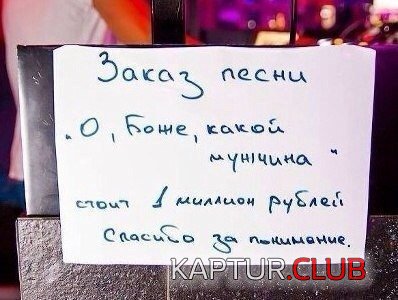 Заказ песни
"О, Боже, какой
мужчина"
стоит 1 миллион рублей
Спасибо за понимание.
KAPTUR.CLUB